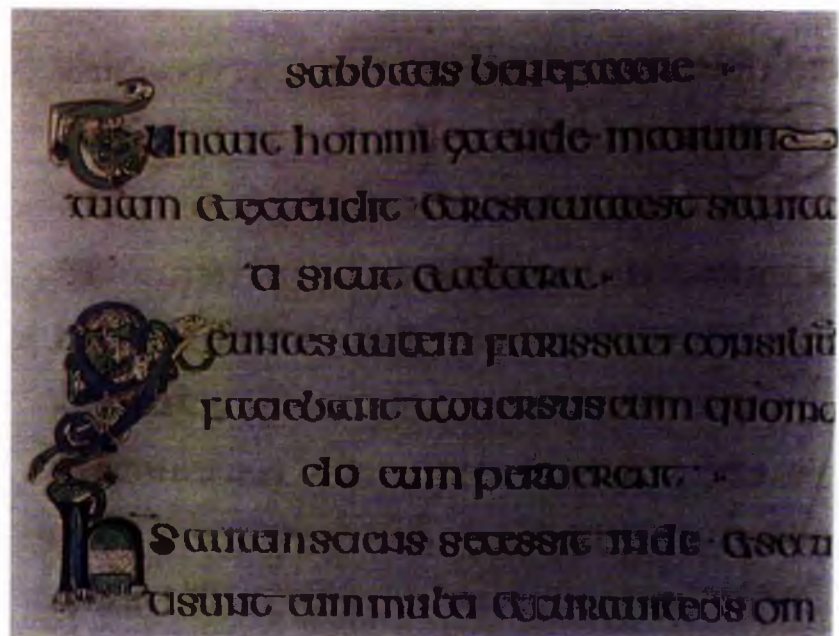 sabbatis benefacere
Tunc ait homini extende manum
tuam et extendit et restituta est sanita
ti sicut altera
Exeuntes autem farissaei consiliū
faciebant adversus eum quomo
do eum perderent
ihs autem sciens secessit inde et secu
ti sunt eum multi et curavit eos om